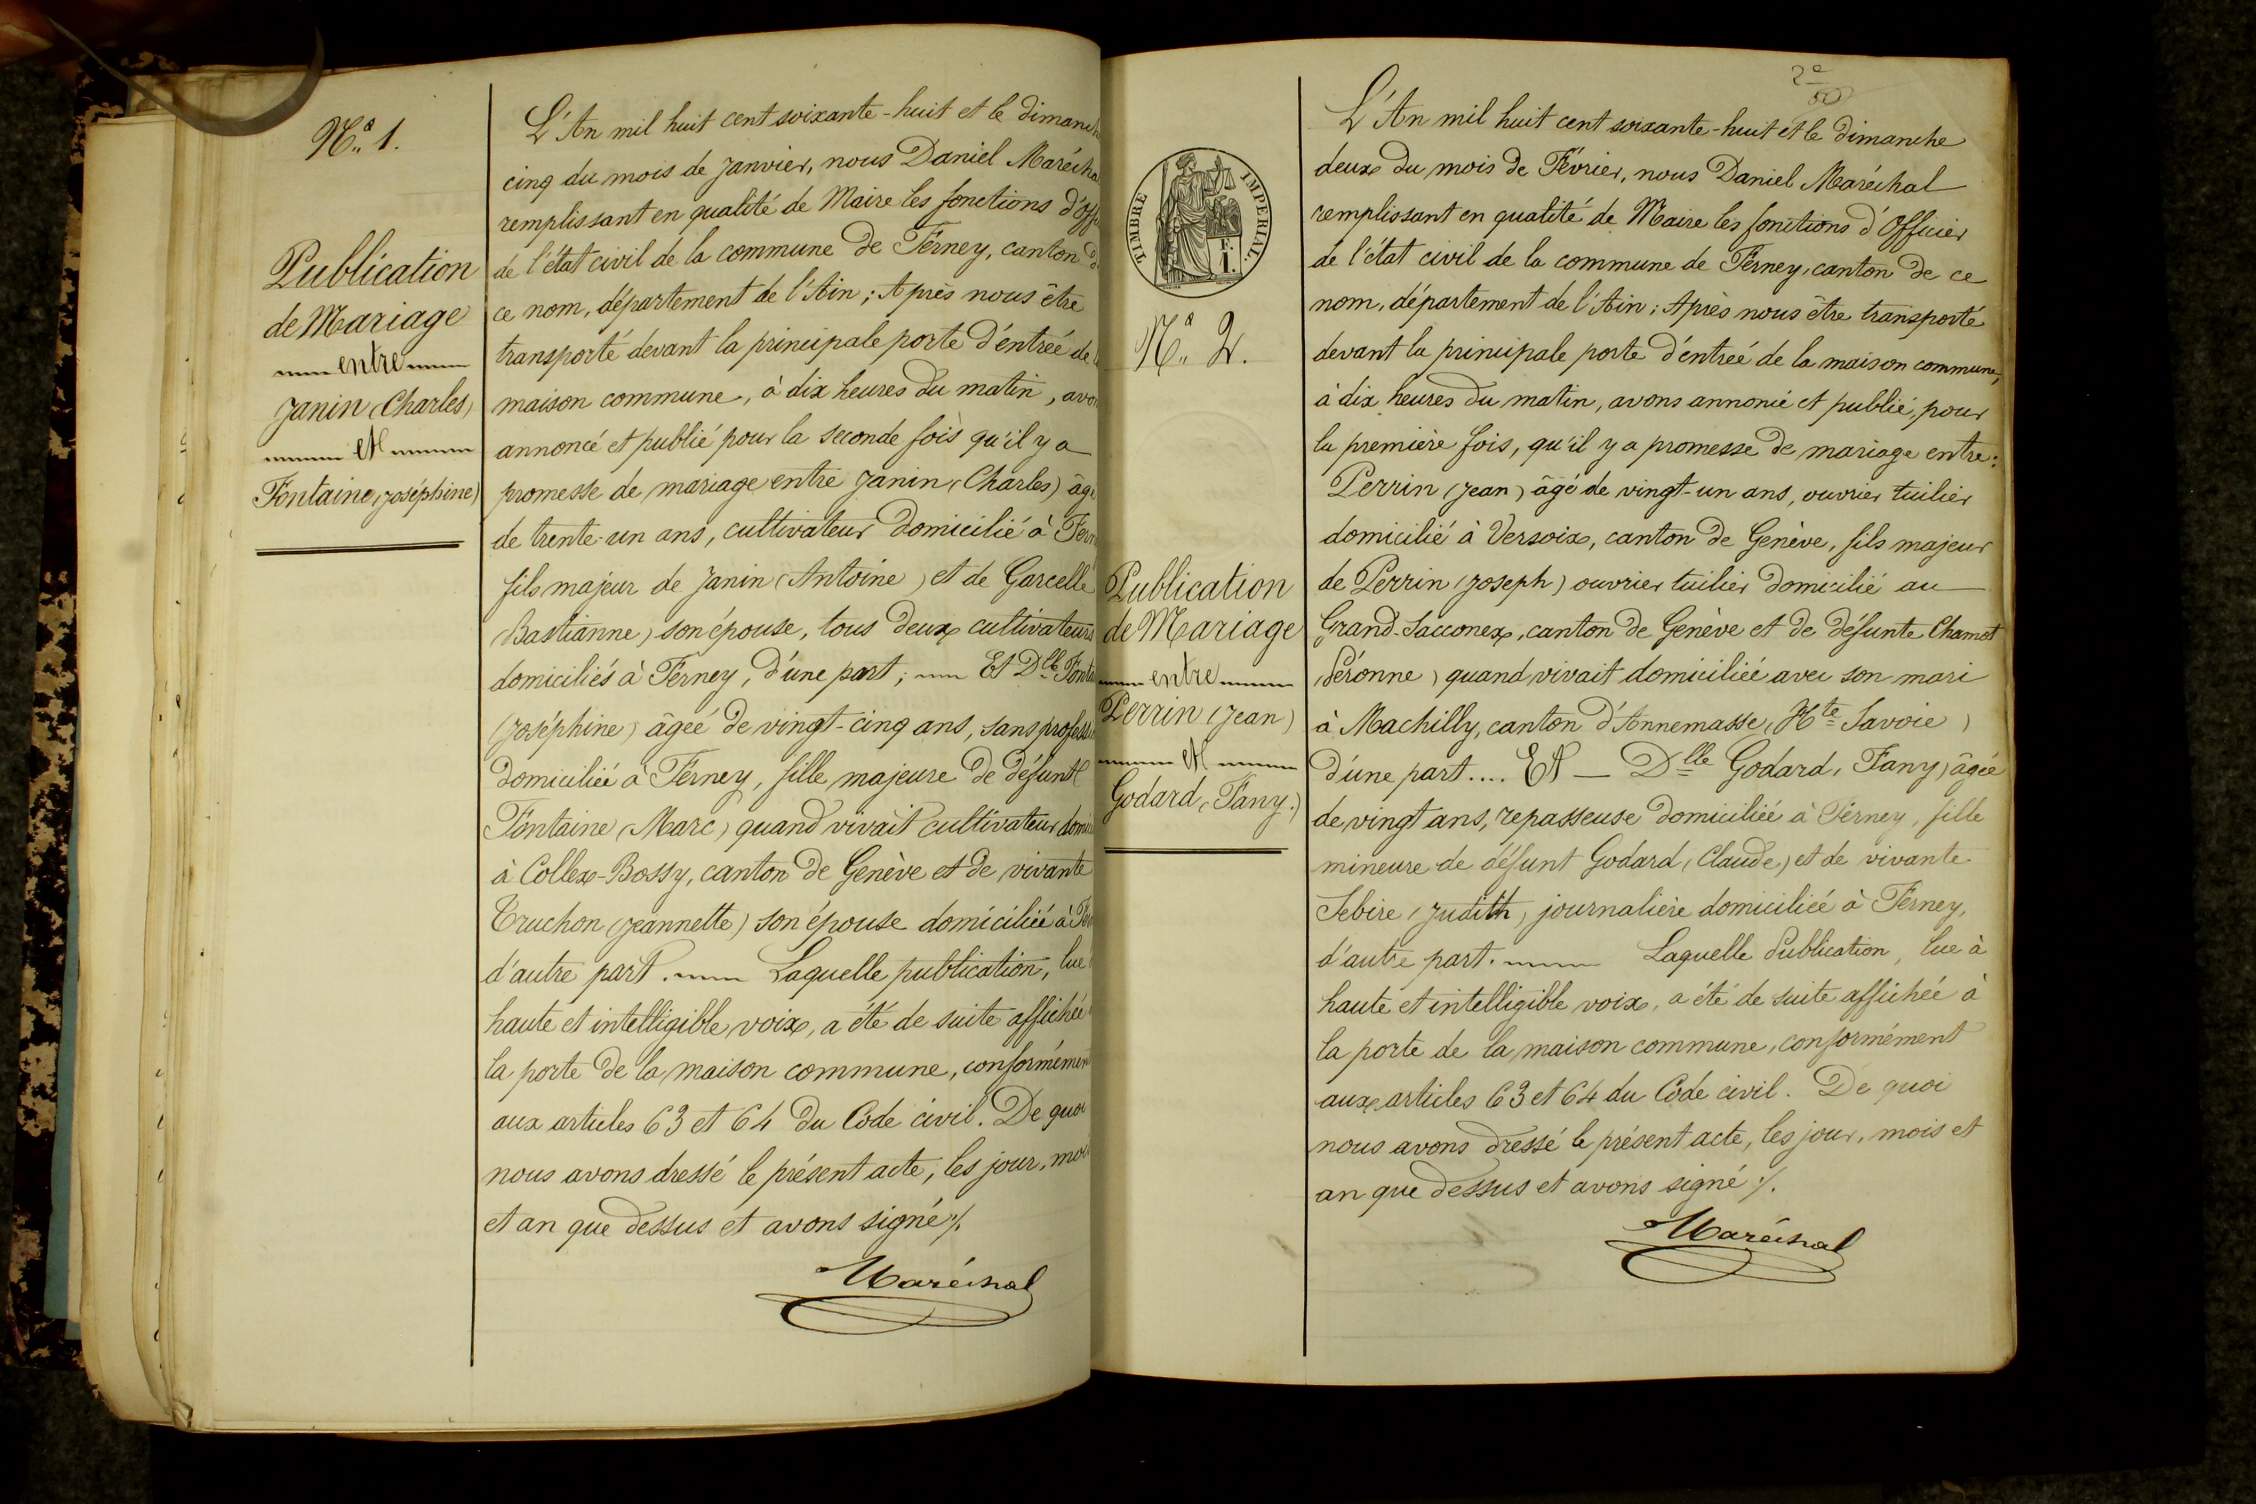 N.° 1.
Publication
de Mariage
entre
Janin (Charles)
et
Fontaine (Joséphine)
L'An mil huit cent soixante-huit et le dimanch
cinq du mois de Janvier, nous Daniel Marécha
remplissant en qualité de Maire les fonctions d'Offi
de l'état civil de la commune de Ferney, canton d
ce nom, département de l'Ain ; Après nous être
transporté devant la principale porte d'entrée de l
maison commune, à dix heures du matin, avo
annoncé et publié pour la seconde fois qu'il y a
promesse de mariage entre Janin (Charles) âg
de trente-un ans, cultivateur domicilié à Fern
fils majeur de Janin (Antoine) et de Garcelle
(Bastianne) son épouse, tous deux cultivateurs
domiciliés à Ferney, d'une part ; Et Dlle Fonta
(Joséphine) âgée de vingt-cinq ans, sans profess
domiciliée à Ferney, fille majeure de défunt
Fontaine (Marc) quand vivait cultivateur domi
à Collex-Bossy, canton de Genève et de vivante
Truchon (Jeannette) son épouse domiciliée à Fer
d'autre part. Laquelle publication, lue
haute et intelligible voix, a été de suite affichée
la porte de la maison commune, conformémen
aux articles 63 et 64 du Code civil. De quoi
nous avons dressé le présent acte, les jour, moi
et an que dessus et avons signé ./.
Maréchal
2e
TIMBRE IMPERIAL.
N.° 2.
Publication
de Mariage
entre
Perrin (Jean)
et
Godard (Fany.)
L'An mil huit cent soixante-huit et le dimanche
deux du mois de Février, nous Daniel Maréchal
remplissant en qualité de Maire les fonctions d'Officier
de l'état civil de la commune de Ferney, canton de ce
nom, département de l'Ain ; Après nous être transporté
devant la principale porte d'entrée de la maison commune,
à dix heures du matin, avons annoncé et publié, pour
la première fois, qu'il y a promesse de mariage entre :
Perrin (Jean) âgé de vingt-un ans, ouvrier tuilier
domicilié à Versoix, canton de Genève, fils majeur
de Perrin (Joseph) ouvrier tuilier domicilié au
Grand-Sacconex, canton de Genève et de défunte Chamot
(Péronne) quand vivait domiciliée avec son mari
à Machilly, canton d'Annemasse (Hte Savoie)
d'une part.... Et — Dlle Godard (Fany) âgée
de vingt ans, repasseuse domiciliée à Ferney, fille
mineure de défunt Godard (Claude) et de vivante
Sebire (Judith) journalière domiciliée à Ferney,
d'autre part. Laquelle Publication, lue à
haute et intelligible voix, a été de suite affichée à
la porte de la maison commune, conformément
aux articles 63 et 64 du Code civil. De quoi
nous avons dressé le présent acte, les jour, mois et
an que dessus et avons signé ./.
Maréchal